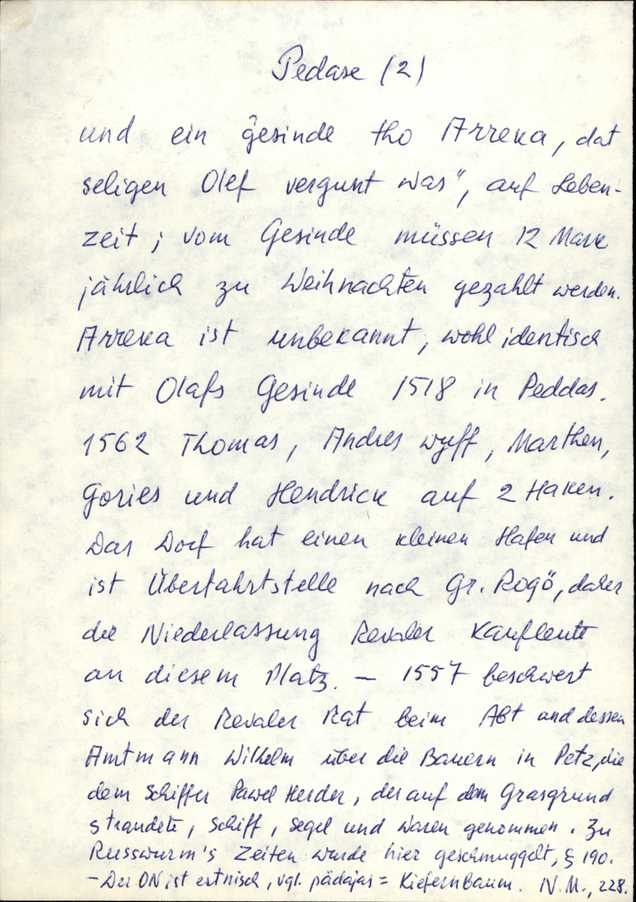 Pedase (2)
und ein gesinde tho Arreka, dat
seligen Olef vergunt was", auf Leben-
zeit; vom Gesinde müssen 12 Mark
jährlich zu Weihnachten gezahlt werden.
Arreka ist unbekannt, wohl identisch
mit Olafs Gesinde 1518 in Peddas.
1562 Thomas, Andres wyff, Marthen,
Gories und Hendrick auf 2 Haken.
Das Dorf hat einen kleinen Hafen und
ist Überfahrtstelle nach Gr. Rogö, daher
die Niederlassung Revaler Kaufleute
an diesem Platz. – 1557 beschwert
sich der Revaler Rat beim Abt und dessen
Amtmann Wilhelm über die Bauern in Petz, die
dem Schiffer Pawel Herder, der auf dem Grasgrund
strandete, Schiff, Segel und Waren genommen. Zu
Russwurm's Zeiten wurde hier geschmuggelt, § 190.
– Der ON ist estnisch, vgl. pädajas = Kiefernbaum. N.M., 228.